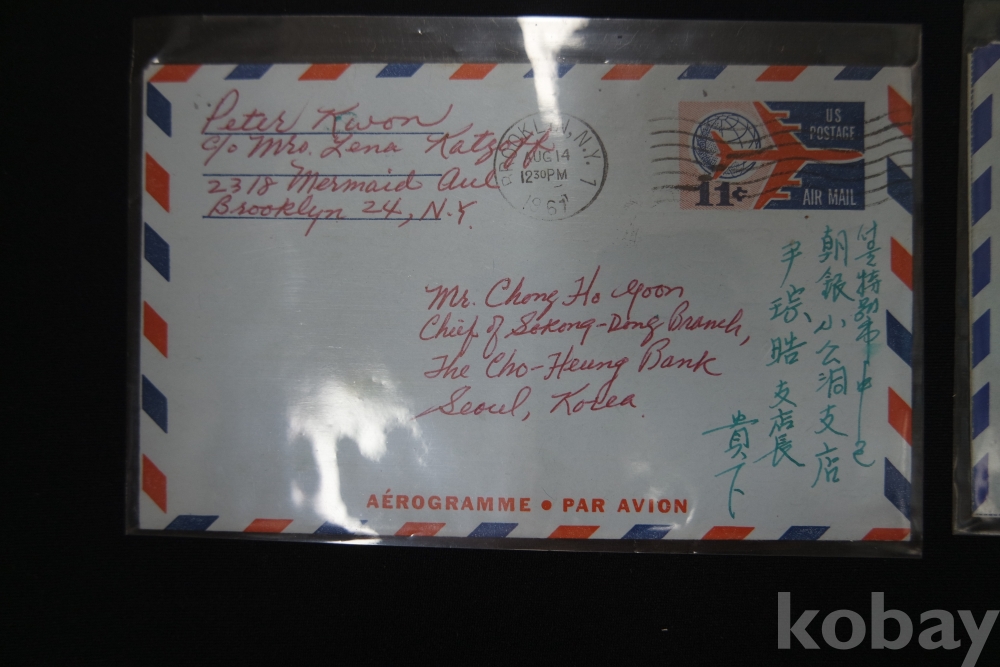 Peter Kwon
c/o Mrs. Lena
2318 Mermaid Ave
Brooklyn 24, N.Y.
BROOKLYN, N.Y. 1
AUG 14
1230 PM
1961
US
POSTAGE
11¢
AIR MAIL
Mr. Chong Ho Yoon
Chief of Sokong-Dong Branch,
The Cho-Heung Bank
Seoul, Korea
서울特別市中區
朝銀小公洞支店
尹琮皓支店長
貴下
AÉROGRAMME • PAR AVION
kobay